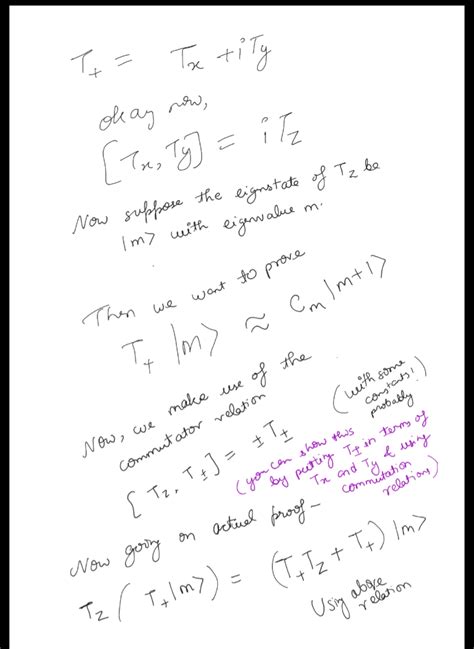 T₊ = Tx + iTy
okay now,
[Tx, Ty] = iTz
Now suppose the eignstate of Tz be
|m> with eigenvalue m.
Then we want to prove
T₊ |m> ≈ Cm |m+1>
(with some
constants!
probably)
Now, we make use of the
commutator relation
[Tz, T±] = ± T±
(you can show this
by putting T± in terms of
Tx and Ty & using
commutation
relations)
Now going on actual proof –
Tz ( T₊ |m>) = (T₊Tz + T₊) |m>
Using above
relation